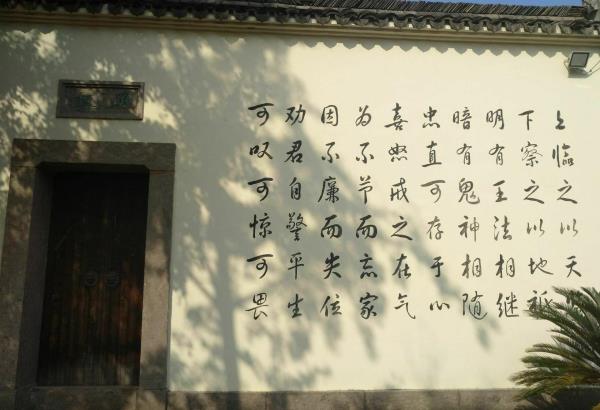 上临之以天
下察之以地祇
明有王法相继
暗有鬼神相随
忠直可存于心
喜怒戒之在气
为不节而忘家
因不廉而失位
劝君自警平生
可叹可惊可畏